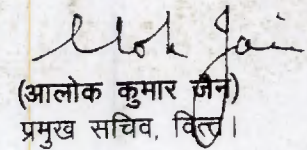 Alok Jai
(आलोक कुमार जैन)
प्रमुख सचिव, वित्त।